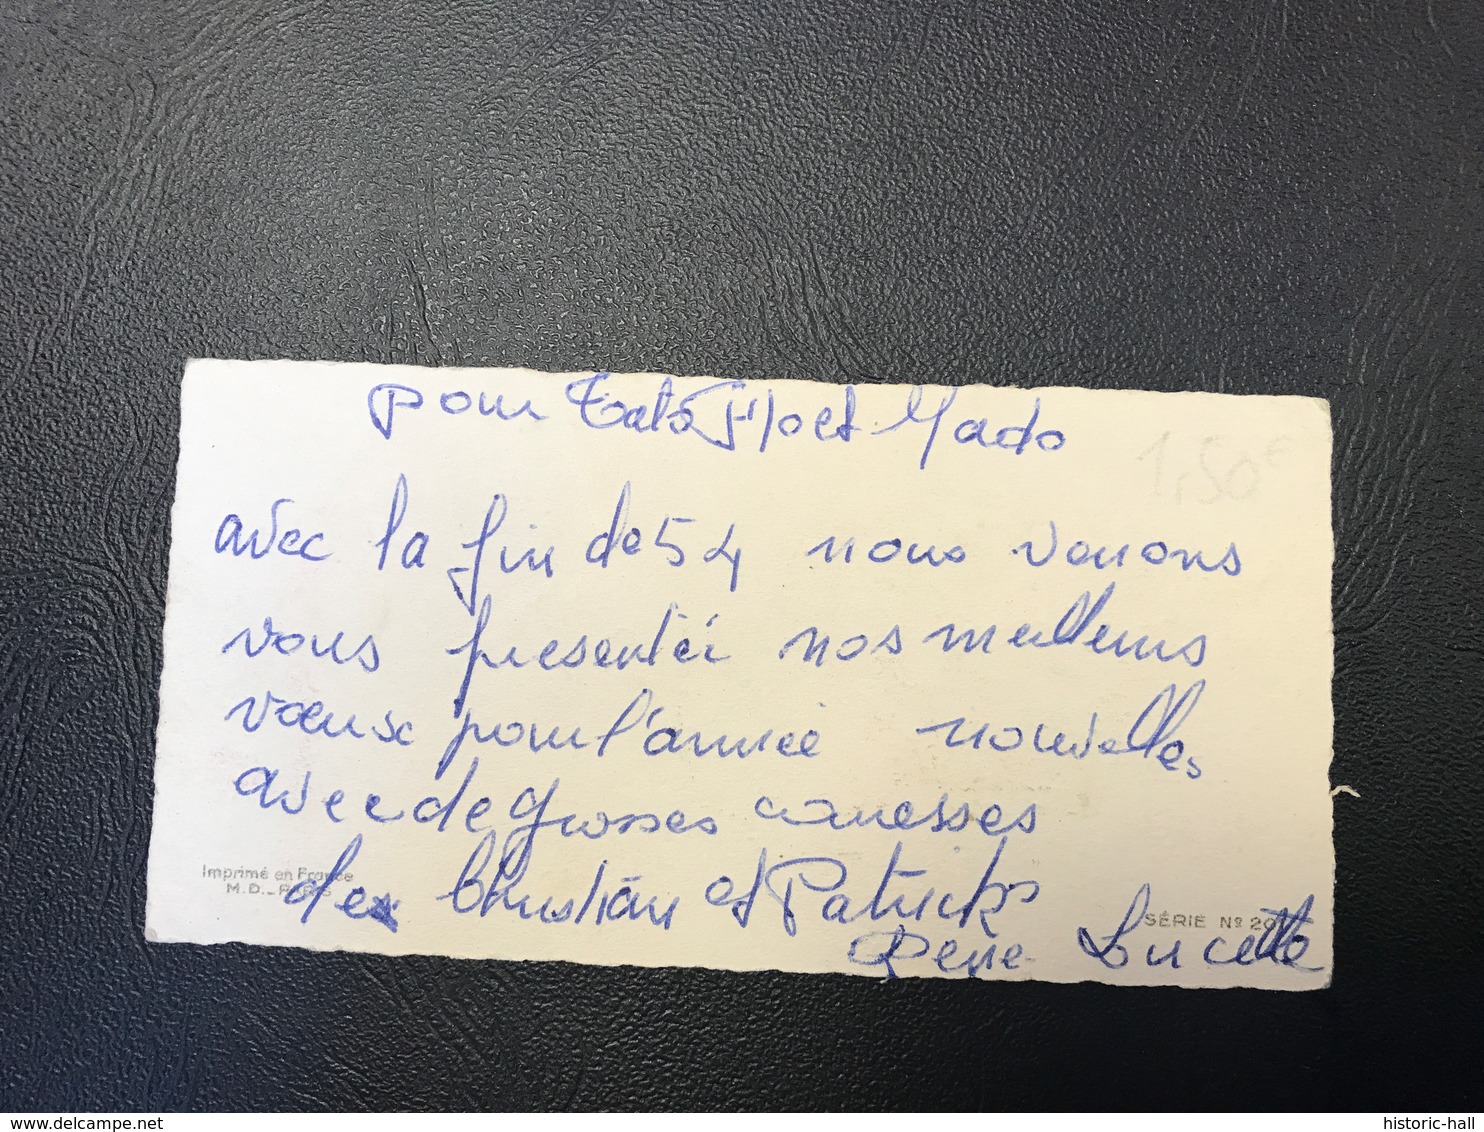 pour Tata Flo et Mado
1,50€
avec la fin de 54 nous venons
vous presenter nos meilleurs
vœux pour l'année nouvelles
avec de grosses caresses
de Christian et Patrick
René Lucette
Imprimé en France
M.D. - PARIS
SÉRIE Nº 20
delcampe.net
historic-hall